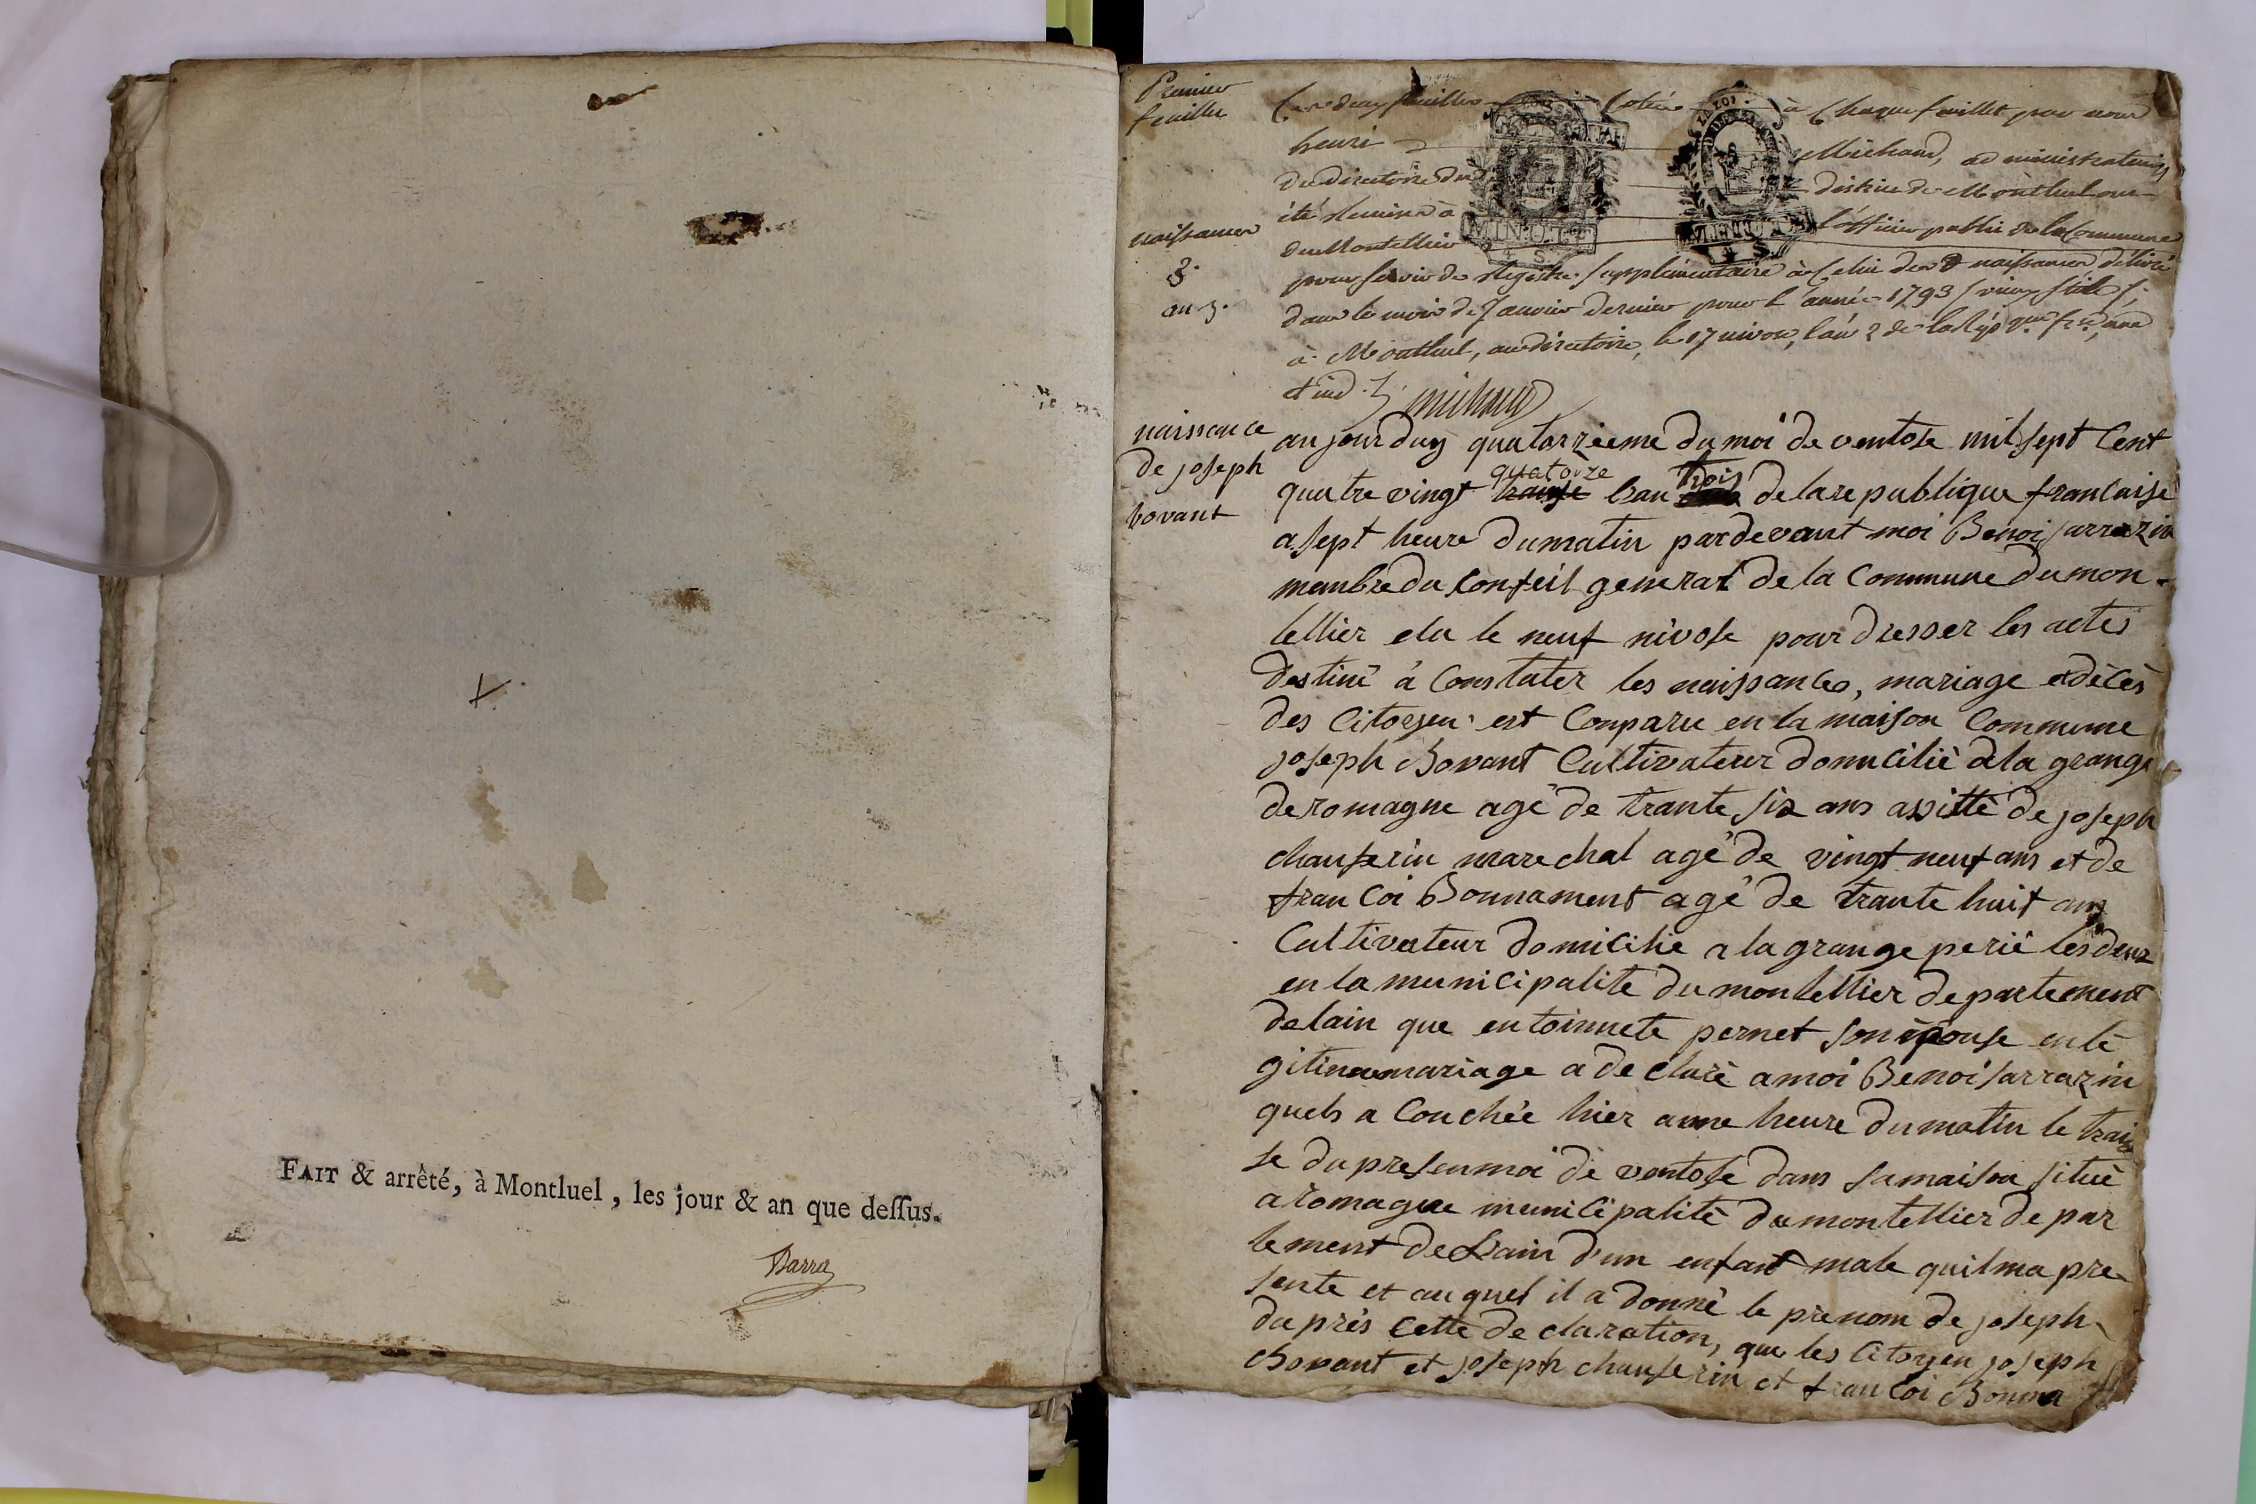 FAIT & arrêté, à Montluel, les jour & an que deſſus.
Barra
Premier
feuillet
naissances
an 3.
Ces deux feuillets cotées à Chaque feuillet par nous
henri Michaud, administrateur
du directoire du district de Montluel ont
été Remise à l'officier public de la Commune
du Montellier
pour servir de Registre supplémentaire à Celui des naissances délivré
dans le mois de Janvier dernier pour l'année 1793 (vieux stile);
à Montluel, au directoire, le 17 nivose, l'an 2 de la Rép.que fr.se, une
et ind.
Michaud
naissance
de joseph
bovant
aujourduy quatorzieme du moi de ventose mil sept Cent
quatre vingt quatorze lan trois de la republique francaise
a sept heure du matin pardevant moi Benoi sarrazin
menbre du Conseil general de la Commune du mon
tellier elu le neuf nivose pour dresser les actes
destiné à Constater les naissances, mariage et décès
des Citoyen est Conparu en la maison Commune
joseph Bovant Cultivateur domicilié à la grange
de romagne agé de trante six ans assitté de joseph
chanserin marechal agé de vingt neuf ans et de
francoi Bonnament agé de trante huit ans
Cultivateur domicilie a la grange perié les deux
en la municipalite du montellier departement
de lain que entoinnete pernet son épouse en lé
gitime mariage a declaré a moi Benoi sarrazin
quels a Couchée hier a une heure du matin le traiz
se du presen moi de ventose dans sa maison situé
a romagne municipalité du montellier depar
tement de Lain d'un enfant male quil ma pre
sente et au quel il a donné le prenom de joseph
da près Cette declaration, que les Citoyen joseph
Bovant et joseph chanserin et francoi Bonna